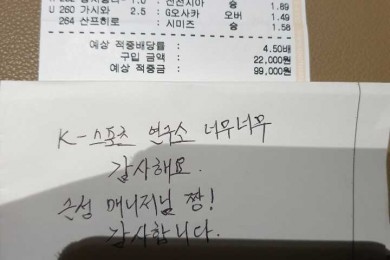 승 1.89
U 260 가시와 2.5 : G오사카 오버 1.49
264 산프히로 : 시미즈 승 1.58
예상 적중배당률 : 4.50배
구입 금액 : 22,000원
예상 적중금 : 99,000원
K-스포츠 연구소 너무너무
감사해요.
근성 매니저님 짱!
감사합니다.